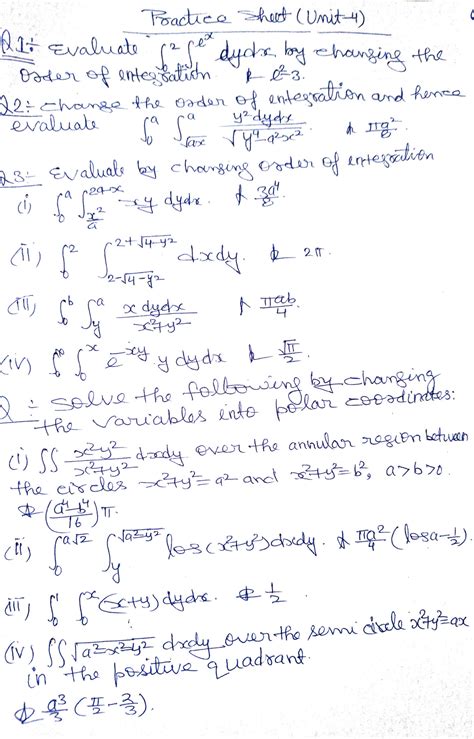 Practice Sheet (Unit-4)
Q1:- Evaluate ∫₀² ∫₁^{e^x} dydx by changing the
order of integration A e²-3.
Q2:- change the order of integration and hence
evaluate ∫₀^a ∫_{√ax}^a y²dydx/√(y⁴-a²x²) A πa²/6.
Q3:- Evaluate by changing order of integration
(i) ∫₀^a ∫_{x²/a}^{2a-x} xy dydx. A 3a⁴/8.
(ii) ∫₀² ∫_{2-√4-y²}^{2+√4-y²} dxdy. A 2π.
(iii) ∫₀^b ∫_y^a x dydx/x²+y² A πab/4.
(iv) ∫₀^∞ ∫₀^x e^{-xy} y dydx A √π/2.
Q :- Solve the following by changing
the variables into polar coordinates:
(i) ∫∫ x²y²/x²+y² dxdy over the annular region between
the circles x²+y²=a² and x²+y²=b², a>b>0.
A (a⁴-b⁴/16)π.
(ii) ∫₀^{a√2} ∫_y^{√a²-y²} log(x²+y²)dxdy. A πa²/4 (loga-1/2).
(iii) ∫₀¹ ∫₀^x (x+y)dydx. A 1/2
(iv) ∫∫ √a²-x²-y² dxdy over the semi circle x²+y²=ax
in the positive quadrant.
A a³/3 (π/2-2/3).